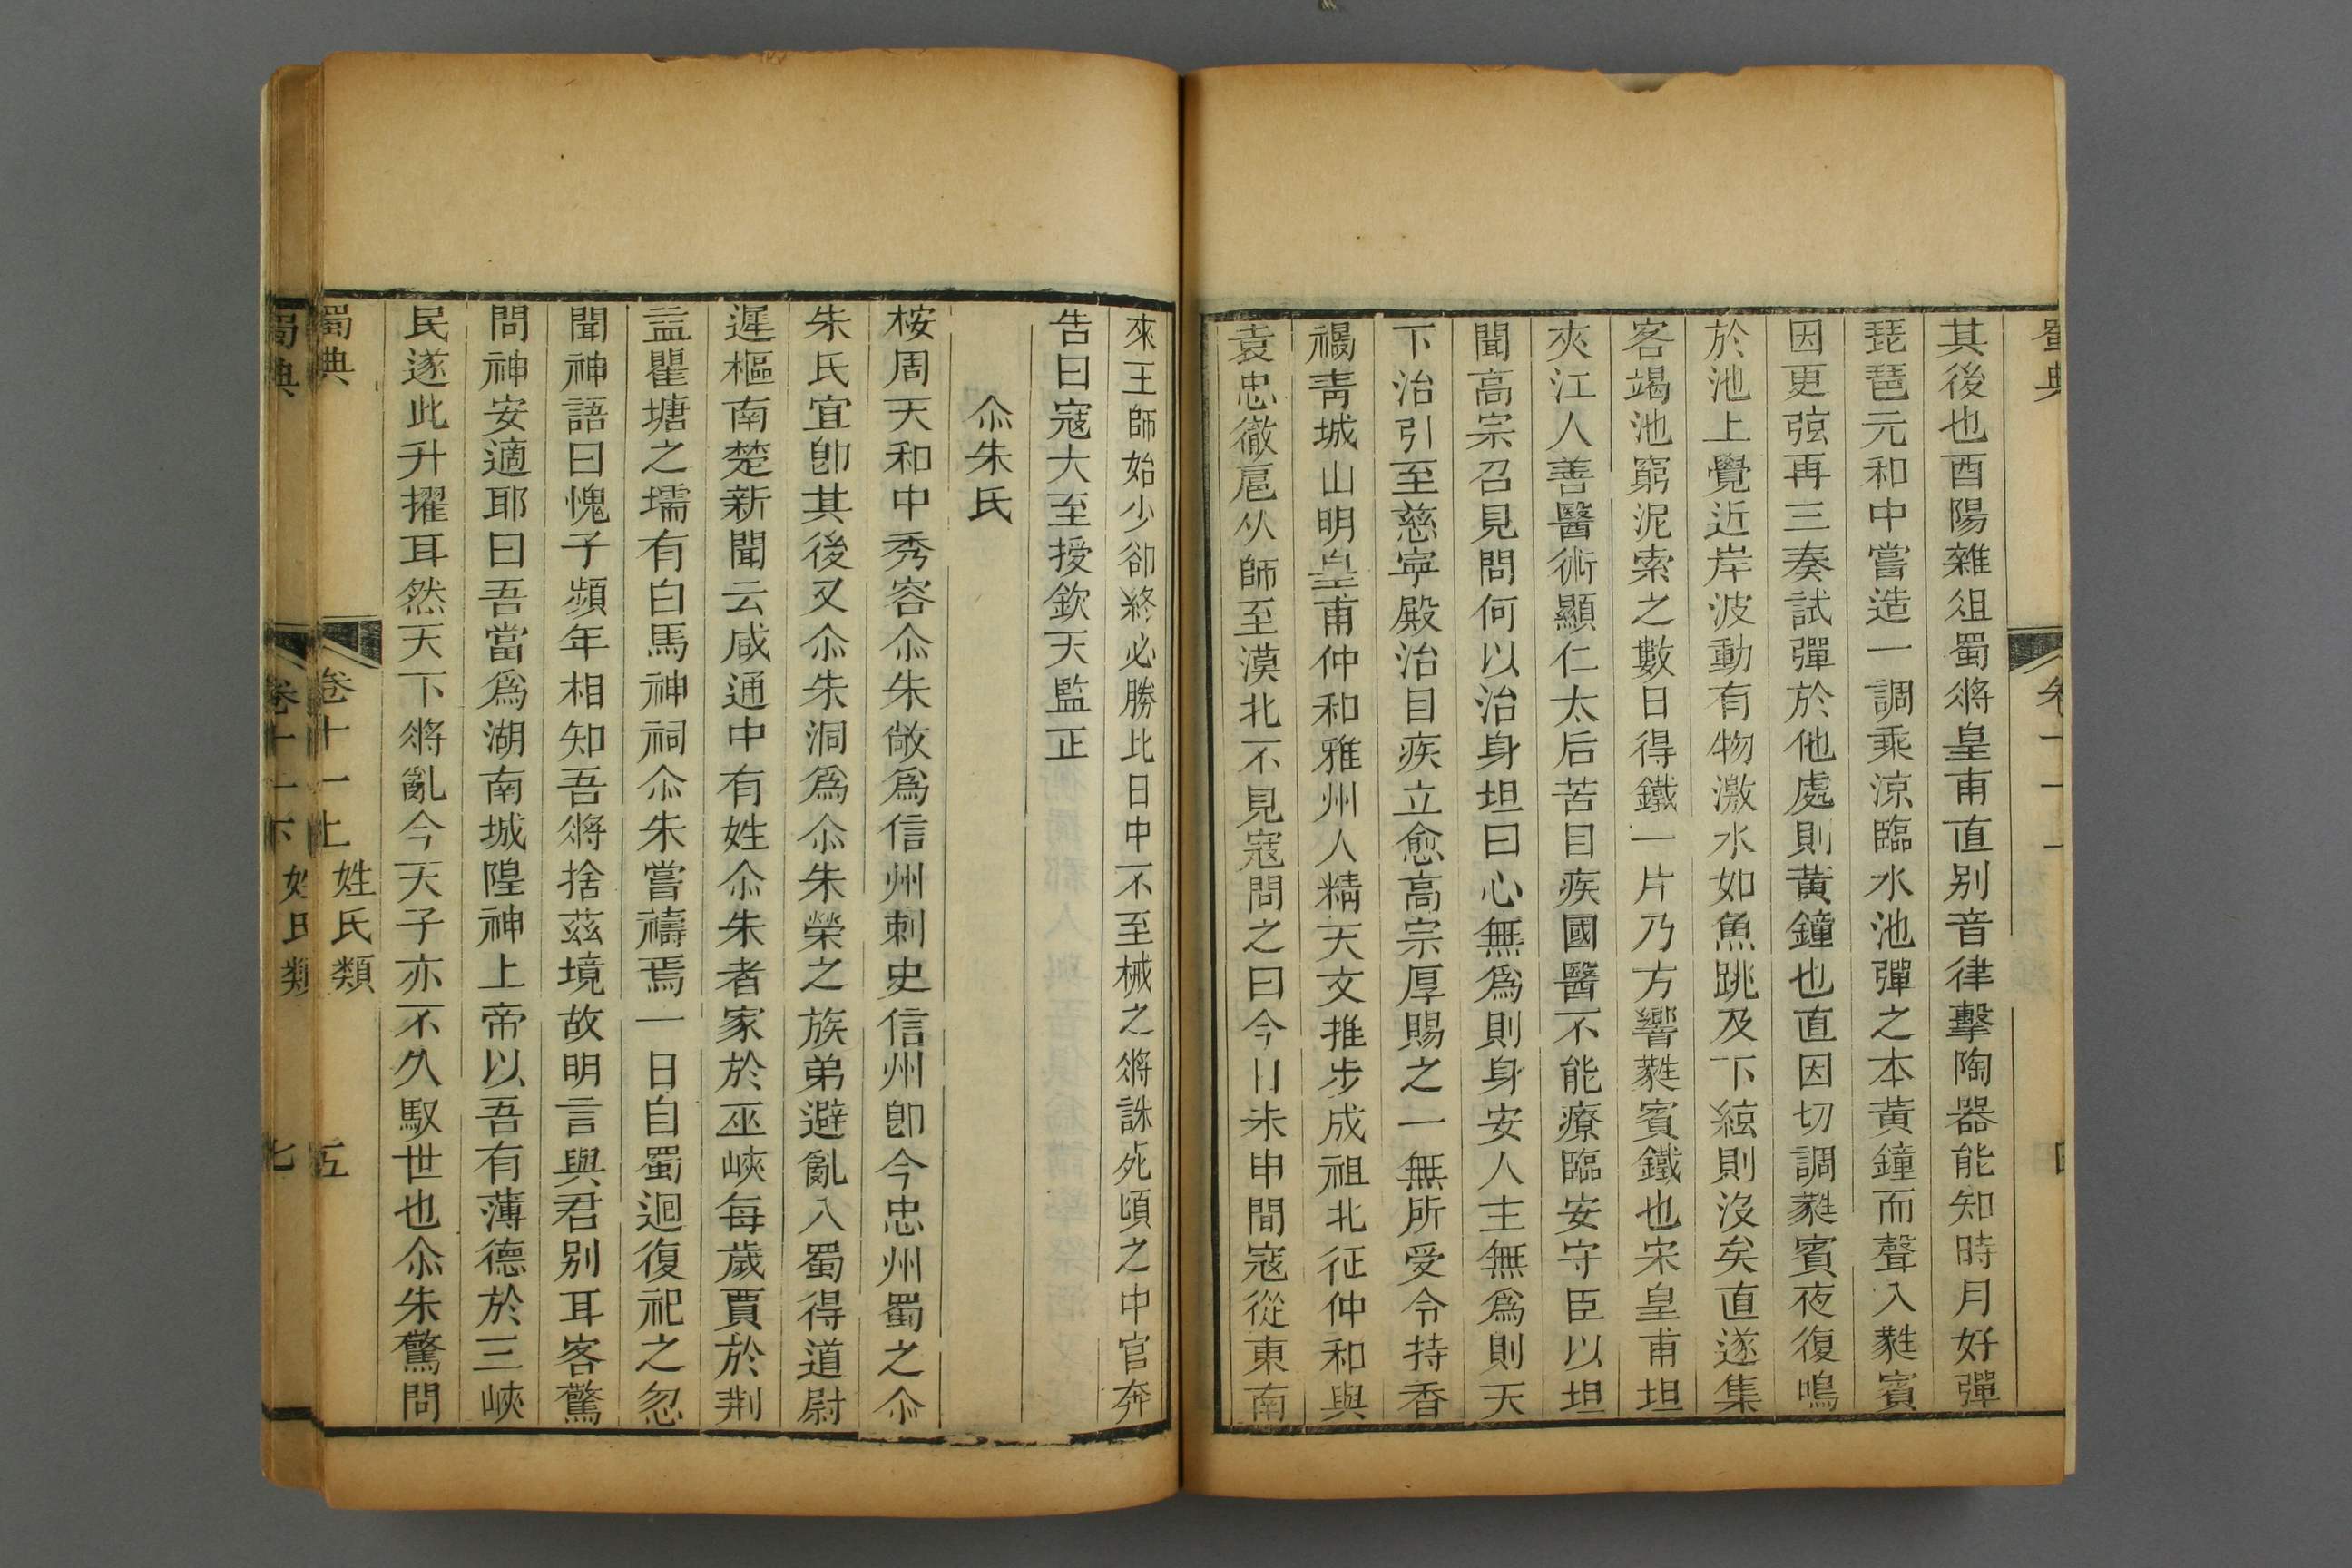 蜀典
卷十一上
其後也酉陽雜俎蜀將皇甫直别音律擊陶器能知時月好彈
琵琶元和中嘗造一調乘涼臨水池彈之本黄鐘而聲入蕤賓
因更弦再三奏試彈於他處則黄鐘也直因切調蕤賓夜復鳴
於池上覺近岸波動有物激水如魚跳及下絃則没矣直遂集
客竭池窮泥索之數日得鐵一片乃方響蕤賓鐵也宋皇甫坦
夾江人善醫術顯仁太后苦目疾國醫不能療臨安守臣以坦
聞高宗召見問何以治身坦曰心無爲則身安人主無爲則天
下治引至慈寧殿治目疾立愈高宗厚賜之一無所受令持香
禱青城山明皇甫仲和雅州人精天文推步成祖北征仲和與
袁忠徹扈从師至漠北不見寇問之曰今日未申間寇從東南
來王師始少卻終必勝比日中不至械之將誅死頃之中官奔
告曰寇大至授欽天監正
尒朱氏
桉周天和中秀容尒朱敞爲信州刺史信州卽今忠州蜀之尒
朱氏宜卽其後又尒朱洞爲尒朱榮之族弟避亂入蜀得道尉
遲樞南楚新聞云咸通中有姓尒朱者家於巫峽每歲賈於荆
益瞿塘之壖有白馬神祠尒朱嘗禱焉一日自蜀迴復祀之忽
聞神語曰愧子頻年相知吾將捨茲境故明言與君别耳客驚
問神安適耶曰吾當爲湖南城隍神上帝以吾有薄德於三峽
民遂此升擢耳然天下將亂今天子亦不久馭世也尒朱驚問
蜀典
卷十一上
姓氏類
五
蜀典
卷十一下
姓氏類
七